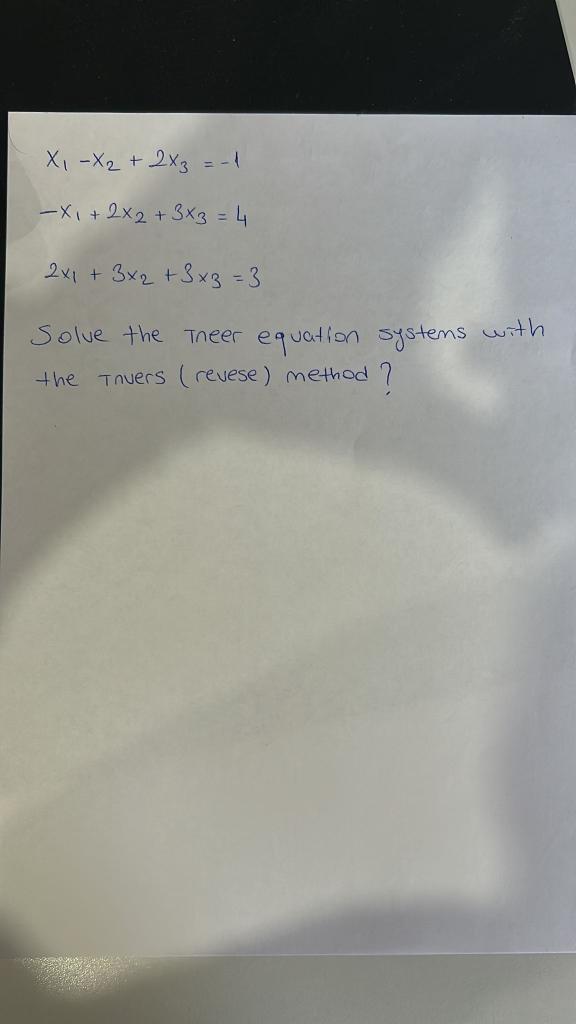 x₁ - x₂ + 2x₃ = -1
-x₁ + 2x₂ + 3x₃ = 4
2x₁ + 3x₂ + 3x₃ = 3
Solve the Ineer equation systems with
the Invers (revese) method?